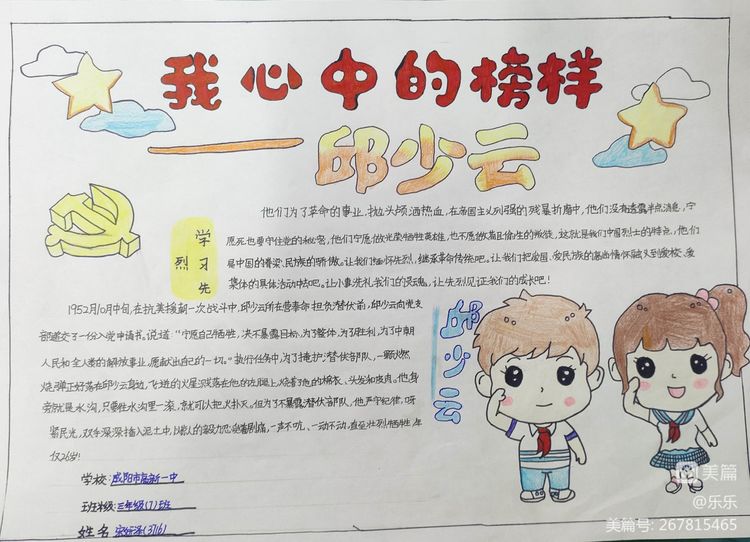 我心中的榜样
——邱少云
学习先烈
他们为了革命的事业,抛头颅洒热血,在帝国主义列强的残暴折磨中,他们没有透露半点消息,宁
愿死也要守住党的秘密,他们宁愿做光荣牺牲英雄,也不愿做苟且偷生的叛徒,这就是我们中国烈士的特点,他们
是中国的脊梁、民族的骄傲。让我们缅怀先烈,继承革命传统吧。让我们把爱国、爱民族的
集体的具体活动中去吧。让小事洗礼我们的灵魂,让先烈见证我们的成长吧!
1952年10月中旬,在抗美援朝一次战斗中,邱少云所在营奉命担负潜伏前,邱少云向党支
部递交了一份入党申请书。说道:“宁愿自己牺牲,决不暴露目标,为了整体,为了胜利,为了中朝
人民和全人类的解放事业,愿献出自己的一切。”执行任务中,为了掩护潜伏部队,一颗燃
烧弹正好落在邱少云身边,飞迸的火星溅落在他的左腿上,烧着了他的棉衣、头发和皮肉。他身
旁就是水沟,只要往水沟里一滚,就可以把火扑灭。但为了不暴露潜伏部队,他严守纪律,咬
紧牙关,双手深深插入泥土中,以惊人的毅力忍受着剧痛,一声不吭、一动不动,直至壮烈牺牲,年
仅26岁!
邱少云
学校:咸阳市高新一中
班级:三年级(7)班
姓名(3716)
美篇
@乐乐
美篇号: 267815465